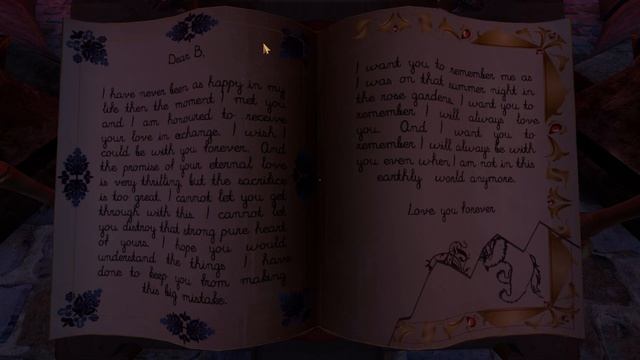 Dear B,
I have never been as happy in my
life then the moment I met you
and I am honoured to receive
your love in exhange. I wish I
could be with you forever. And
the promise of your eternal love
is very thrilling, but the sacrifice
is too great. I cannot let you get
through with this. I cannot let
you distroy that strong pure heart
of yours. I hope you would
understand the things I have
done to keep you from making
this big mistake.
I want you to remember me as
I was on that summer night in
the rose gardens. I want you to
remember I will always love
you. And I want you to
remember I will always be with
you even when I am not in this
earthly world anymore.
Love you forever